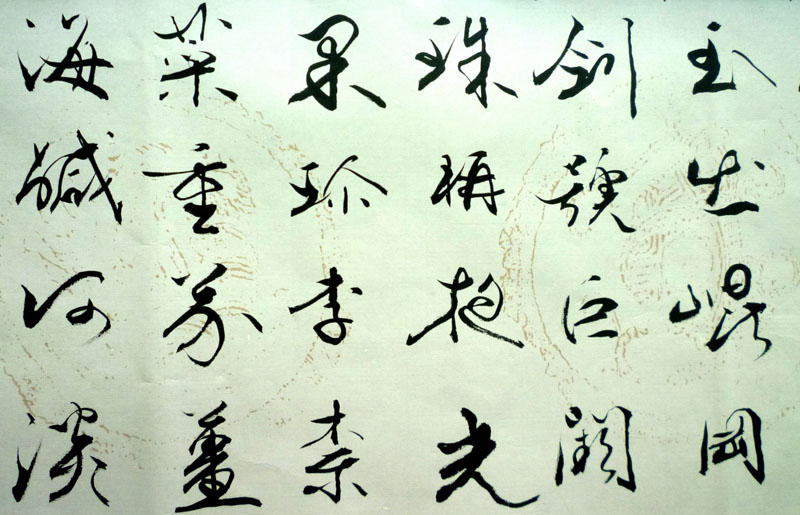 玉出崐岡
劍號巨闕
珠稱夜光
果珍李柰
菜重芥薑
海鹹河淡